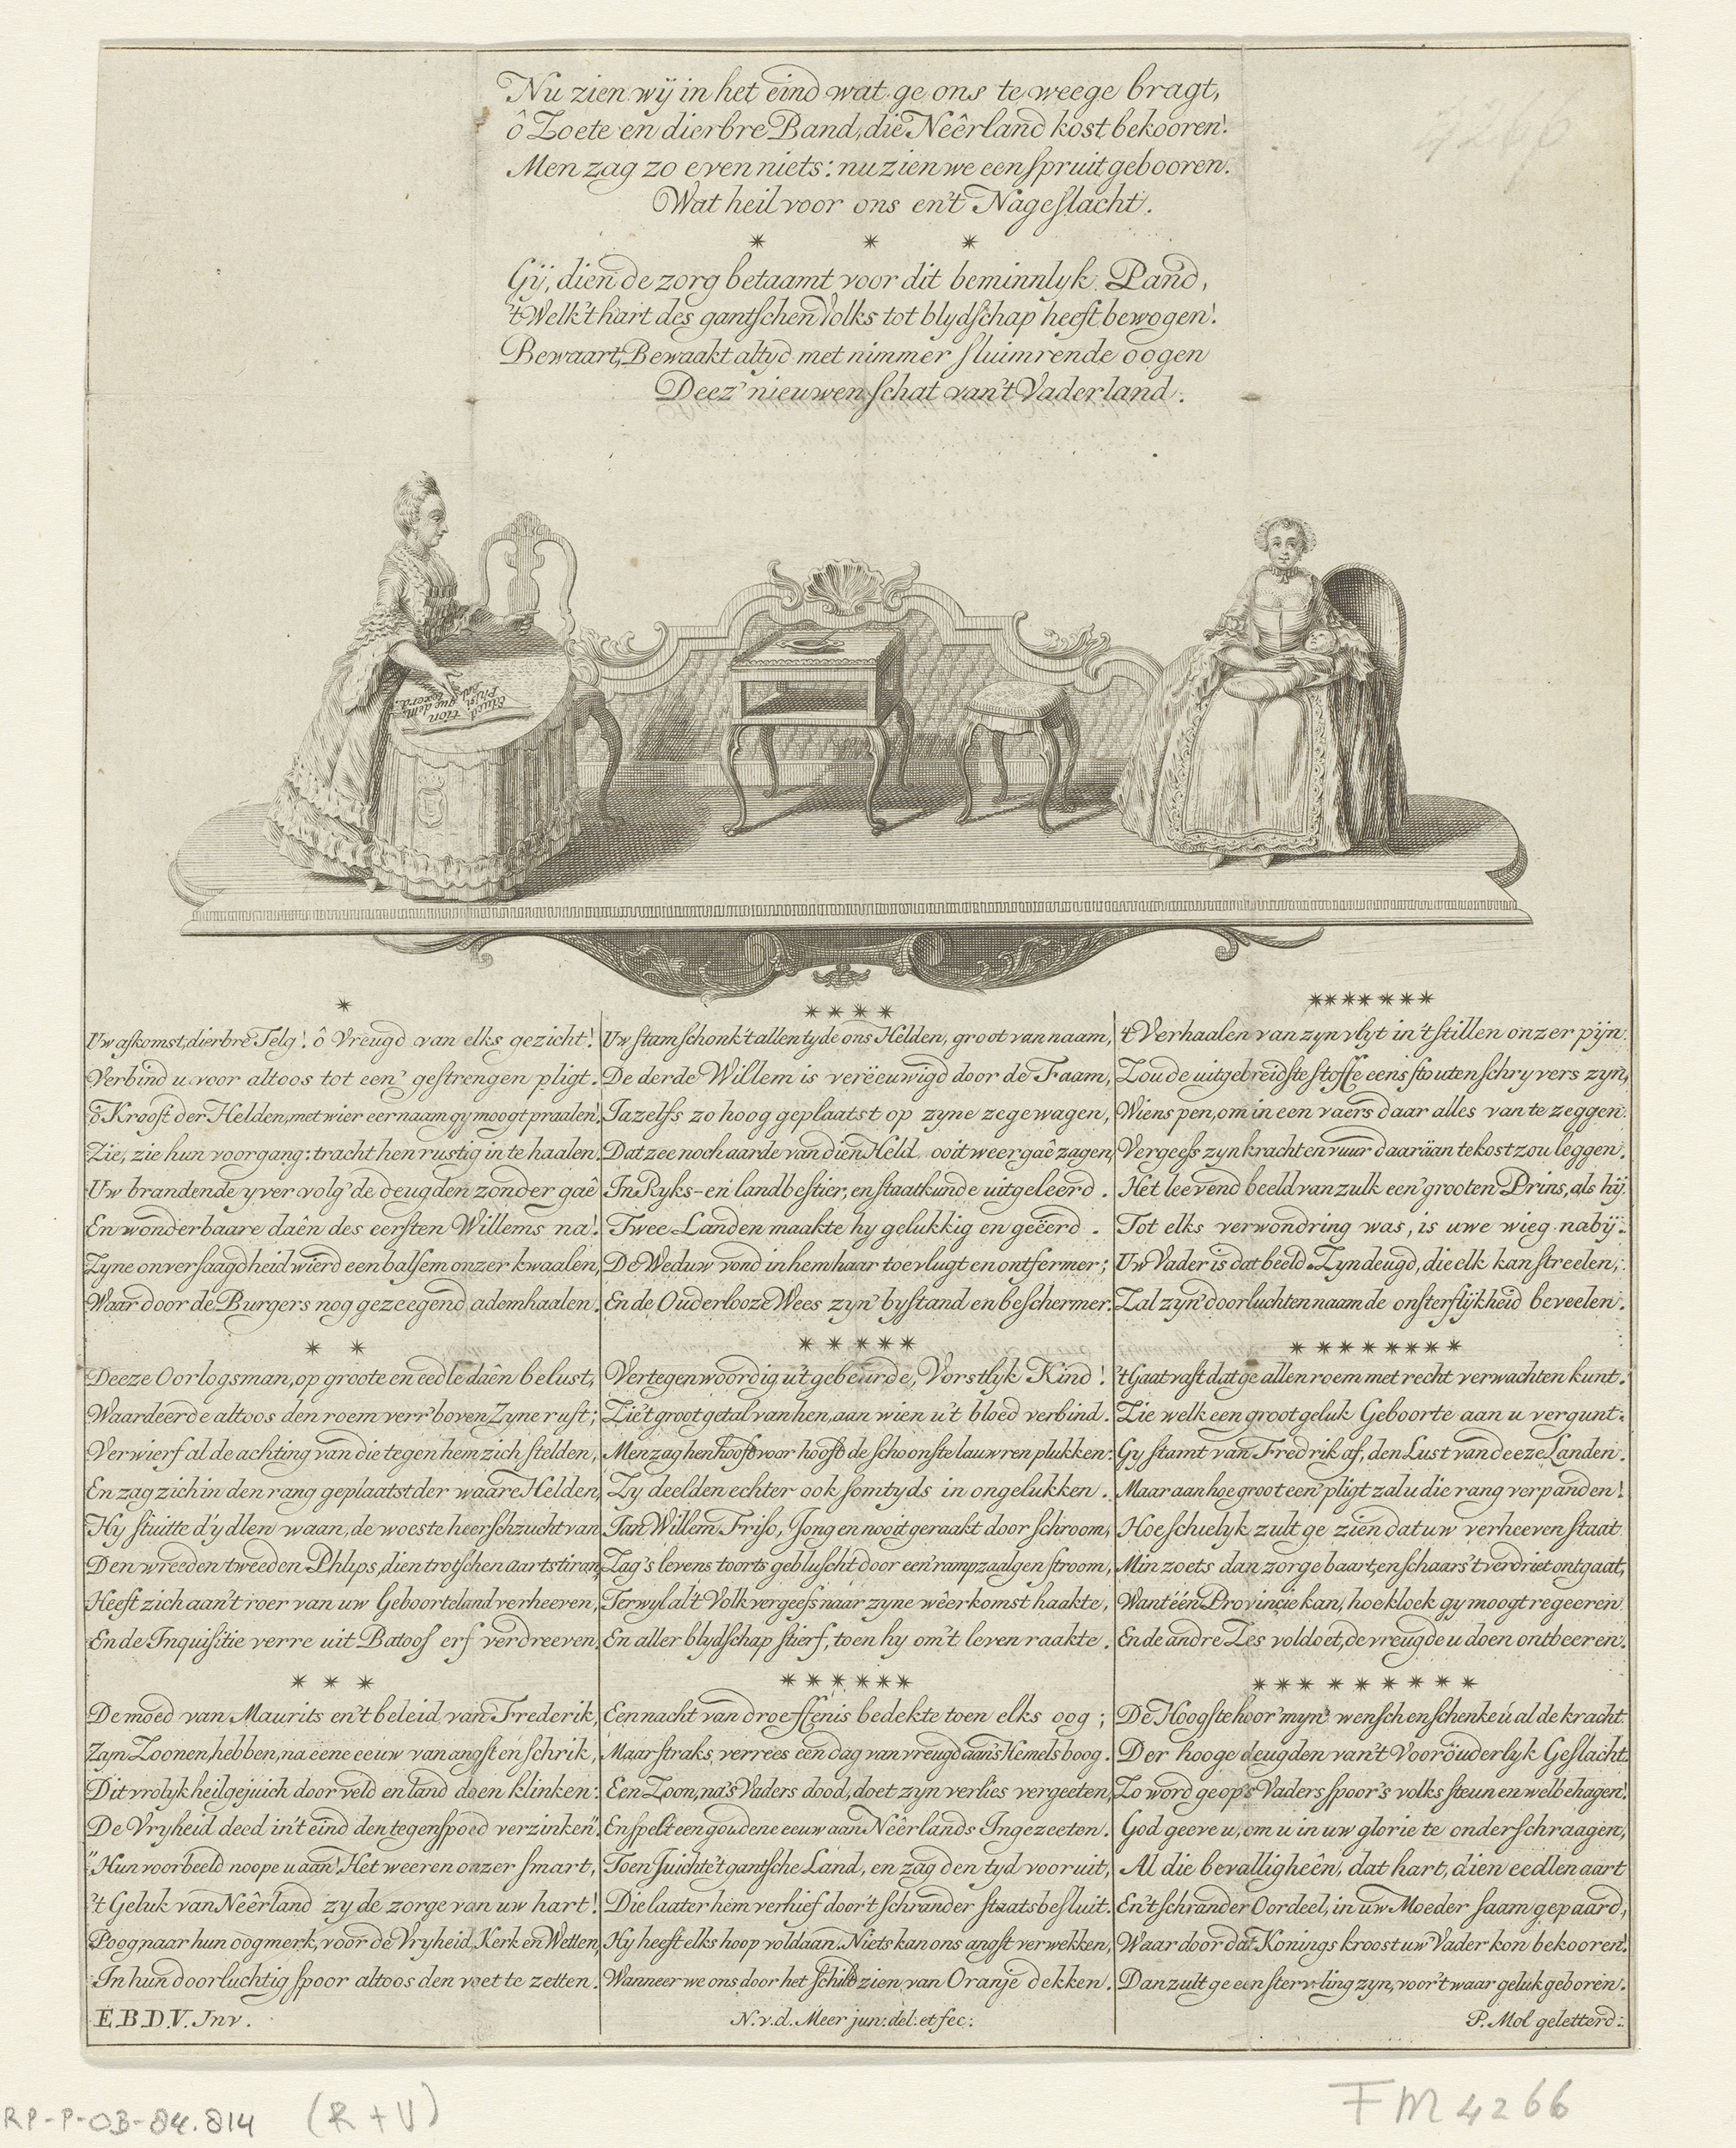 Nu zien wij in het eind wat ge ons te weege bragt,
ô Zoete en dierbre Band, die Neêrland kost bekooren!
Men zag zo even niets: nu zien we een spruit gebooren.
Wat heil voor ons en 't Nageslacht.
* * *
Gij, dien de zorg betaamt voor dit beminnlyk Pand,
't Welk 't hart des gantschen Volks tot blydschap heeft bewogen!
Bewaart, Bewaakt altyd met nimmer sluimrende oogen
Deez' nieuwen schat van 't Vaderland.
Education Philosophique
*
Uw afkomst, dierbre Telg! ô Vreugd van elks gezicht!
Verbind u voor altoos tot een' gestrengen pligt.
ô Kroost der Helden, met wier eernaam gy moogt praalen!
Zie, zie hun voorgang: tracht hen rustig in te haalen.
Uw brandende yver volg' de deugden zonder gaê
En wonderbaare daên des eersten Willems na!
Zyne onversaagdheid wierd een balsem onzer kwaalen,
Waar door de Burgers nog gezeegend ademhaalen.
* *
Deeze Oorlogsman, op groote en eedle daên belust,
Waardeerde altoos den roem verr' boven Zyne rust;
Verwierf al de achting van die tegen hem zich stelden,
En zag zich in den rang geplaatst der waare Helden,
Hy stuitte d'ydlen waan, de woeste heerschzucht van
Den wreeden tweeden Phlips, dien trotschen aartstiran,
Heeft zich aan 't roer van uw Geboorteland verheeven,
En de Inquisitie verre uit Batoos erf verdreeven.
* * *
De moed van Maurits en 't beleid van Frederik,
Zyn Zoonen, hebben, na eene eeuw van angst en schrik,
Dit vrolyk heilgejuich door veld en land doen klinken:
De Vryheid deed in 't eind den tegenspoed verzinken".
"Hun voorbeeld noope u aan! Het weeren onzer smart,
't Geluk van Neêrland zy de zorge van uw hart!
Poog naar hun oogmerk, voor de Vryheid, Kerk en Wetten,
In hun doorluchtig spoor altoos den voet te zetten.
* * * *
Uw stam schonk 't allen tyde ons Helden, groot van naam,
De derde Willem is verëeuwigd door de Faam,
Ja zelfs zo hoog geplaatst op zyne zegewagen,
Dat zee noch aarde van dien Held ooit weergaê zagen,
In Ryks- en landbestier, en staatkunde uitgeleerd.
Twee Landen maakte hy gelukkig en geëerd.
De Weduw vond in hem haar toevlugt en ontfermer;
En de Ouderlooze Wees zyn' bystand en beschermer.
* * * * *
Vertegenwoordig u 't gebeurde, Vorstlyk Kind!
Zie 't groot getal van hen, aan wien u 't bloed verbind.
Men zag hen hoofd voor hoofd de schoonste lauwren plukken:
Zy deelden echter ook somtyds in ongelukken.
Jan Willem Friso, Jong en nooit geraakt door schroom,
Zag 's levens toorts gebluscht door een' rampzaalgen stroom,
Terwyl al 't Volk vergeefs naar zyne wêerkomst haakte,
En aller blydschap stierf, toen hy om 't leven raakte.
* * * * * *
Een nacht van droeffenis bedekte toen elks oog;
Maar straks verrees een dag van vreugd aan 's Hemels boog.
Een Zoon, na 's Vaders dood, doet zyn verlies vergeeten,
En spelt een goudene eeuw aan Neêrlands Ingezeeten.
Toen Juichte 't gantsche Land, en zag den tyd vooruit,
Die laater hem verhief door 't schrander staatsbesluit.
Hy heeft elks hoop voldaan. Niets kan ons angst verwekken,
Wanneer we ons door het schild zien van Oranje dekken.
* * * * * * *
't Verhaalen van zyn vlyt in 't stillen onzer pijn
Zou de uitgebreidste stoffe eens stouten schryvers zyn,
Wiens pen, om in een vaers daar alles van te zeggen
Vergeefs zyn kracht en vuur daaräan te kost zou leggen.
Het leevend beeld van zulk een' grooten Prins, als hij
Tot elks verwondring was, is uwe wieg nabij.
Uw Vader is dat beeld. Zyn deugd, die elk kan streelen,
Zal zyn' doorluchten naam de onsterflijkheid beveelen.
* * * * * * * *
't Gaat vast dat ge allen roem met recht verwachten kunt.
Zie welk een groot geluk Geboorte aan u vergunt.
Gy stamt van Fredrik af, den Lust van deeze Landen.
Maar aan hoe groot een' pligt zal u die rang verpanden!
Hoe schielyk zult ge zien dat uw verheeven staat
Min zoets dan zorge baart, en schaars 't verdriet ontgaat,
Want één Provincie kan, hoe kloek gy moogt regeeren
En de andre Zes voldoet, de vreugde u doen ontbeeren.
* * * * * * * * *
De Hoogste hoor' myn' wensch en schenke u al de kracht
Der hooge deugden van 't Vooröuderlyk Geslacht.
Zo word ge op 's Vaders spoor 's volks steun en welbehagen!
God geeve u, om u in uw glorie te onderschraagen,
Al die bevalligheên, dat hart, dien eedlen aart
En 't schrander Oordeel, in uw Moeder saam gepaard,
Waar door dat Konings kroost uw' Vader kon bekooren!
Dan zult ge een sterv-ling zyn, voor 't waar geluk geboren.
E.B.D.V. Inv.
N.v.d. Meer jun: del: et fec:
P. Mol geletterd:
4266
RP-P-OB-84.814 (R+V)
FM 4266